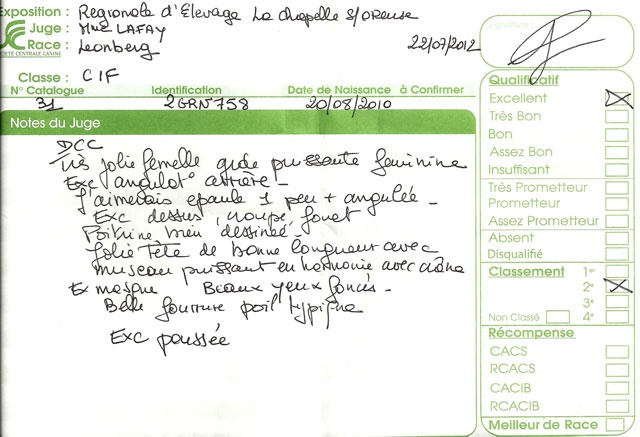 Exposition : Regionale d'Elevage La Chapelle s/oreuse
Juge : Mme LAFAY
Race : Leonberg
SOCIÉTÉ CENTRALE CANINE
22/07/2012
Signature :
Classe : CIF
N° Catalogue Identification Date de Naissance à Confirmer
31 2GRN758 20/08/2010
Notes du Juge
DCC
Très jolie femelle gde puissante feminine
Exc angulat° arrière -
J'aimerais epaule 1 peu + angulée -
Exc dessus, croupe, fouet
Poitrine bien dessinée -
Jolie Tête de bonne longueur avec
museau puissant en harmonie avec crâne
Ex masque Beaux yeux foncés -
Belle fourrure poil typique
Exc poussée
Qualificatif
Excellent
Très Bon
Bon
Assez Bon
Insuffisant
Très Prometteur
Prometteur
Assez Prometteur
Absent
Disqualifié
Classement 1er
2e
3e
Non Classé 4e
Récompense
CACS
RCACS
CACIB
RCACIB
Meilleur de Race